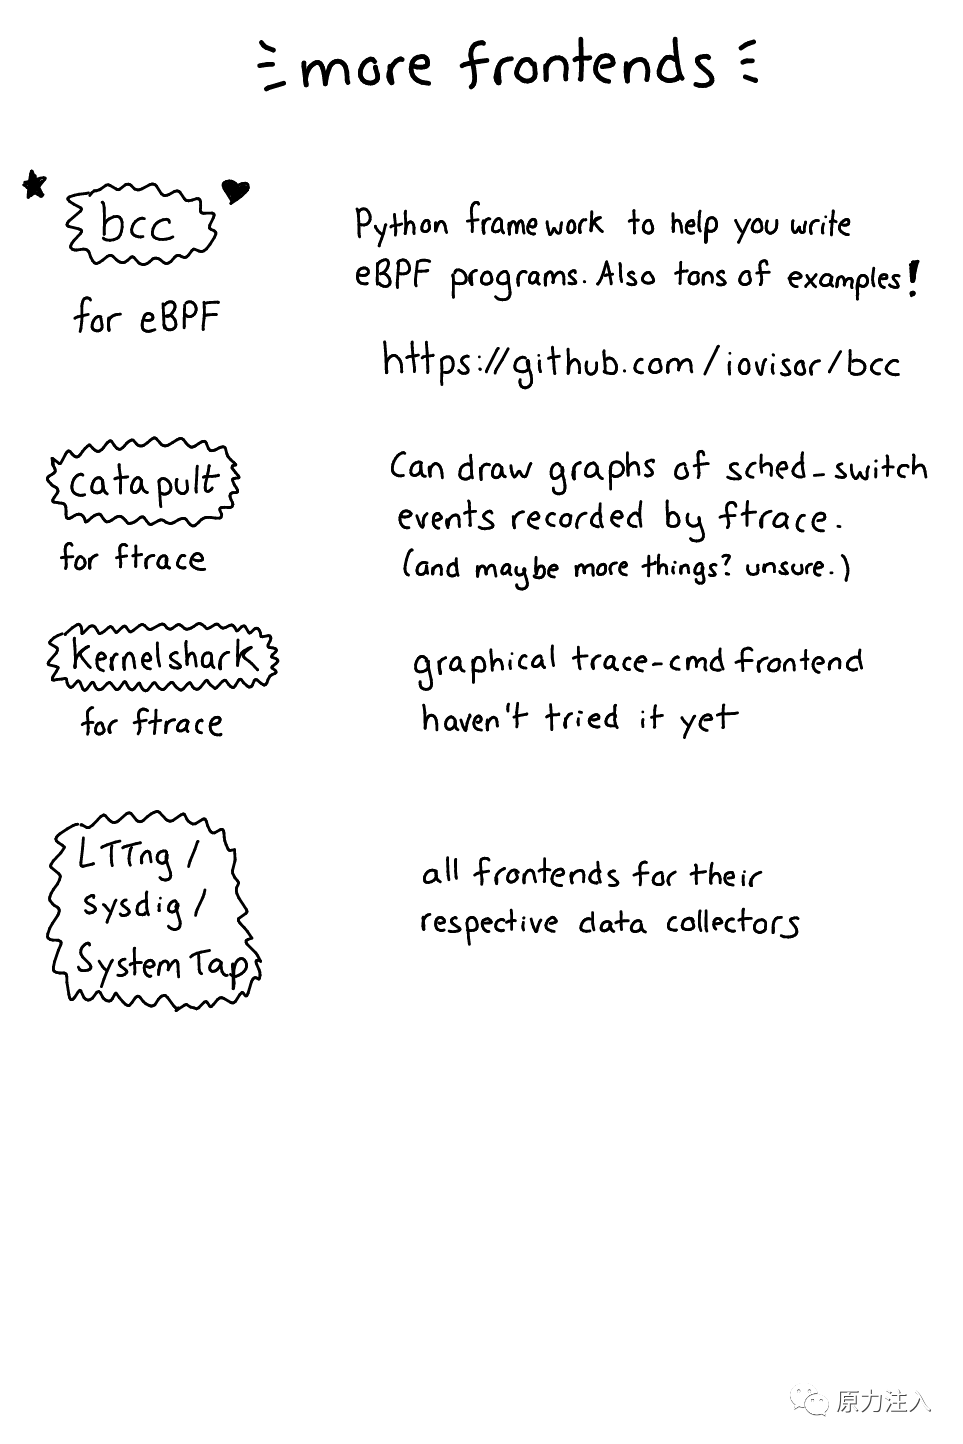 more frontends
bcc
for eBPF
Python framework to help you write
eBPF programs. Also tons of examples!
https://github.com/iovisor/bcc
catapult
for ftrace
Can draw graphs of sched_switch
events recorded by ftrace.
(and maybe more things? unsure.)
kernelshark
for ftrace
graphical trace-cmd frontend
haven't tried it yet
LTTng /
sysdig /
SystemTap
all frontends for their
respective data collectors
原力注入